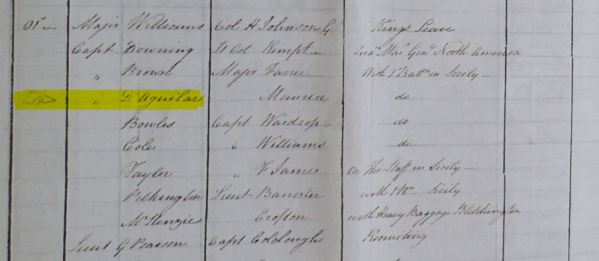 81 — Major Williams Col H Johnson G. Kings Leave
Capt Downing Lt Col Kempt — Genl North America
" Brown Major Farrer With 1 Battn in Sicily —
" D'Aguilar Maurice do
Bowles Capt Wardrop — do
Coles " Williams do
Taylor " F James on the Staff in Sicily —
Pilkington Lieut Banester with 1 Bn — Sicily
McKenzie Crofton with Heavy Baggage Bletchington
Lieut G Pearson Capt Colclough Recruiting
do